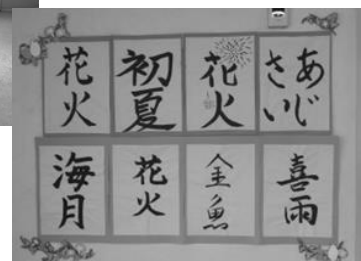 花火
初夏
花火
あじ
さい
海月
花火
金魚
喜雨